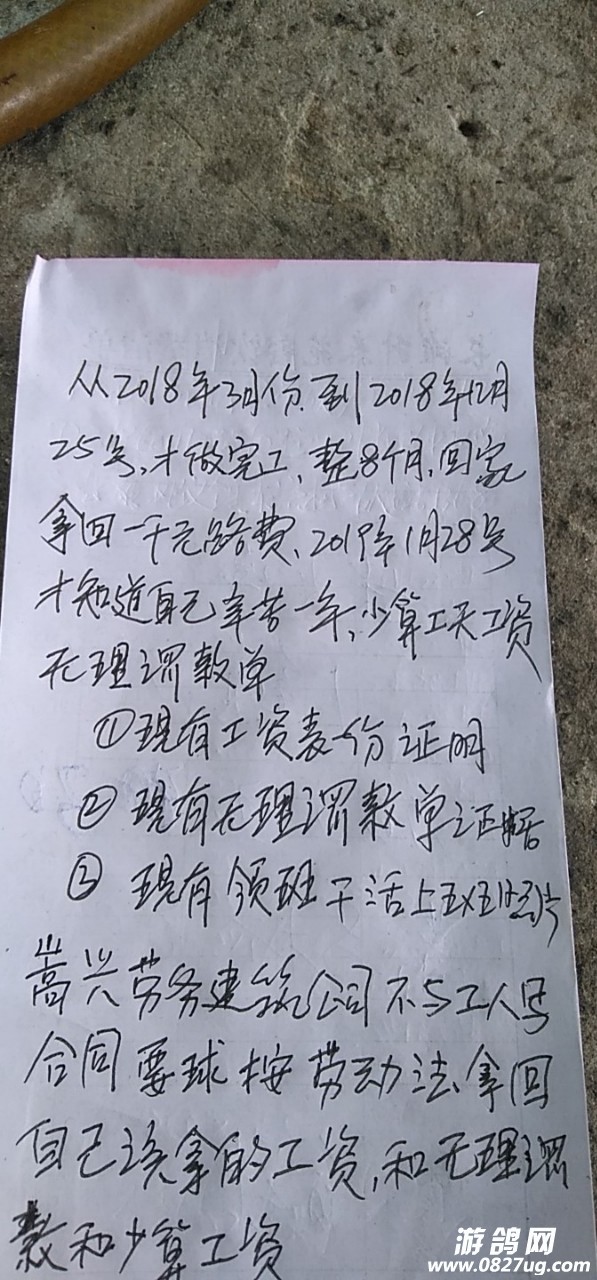 从2018年3月份到2018年12月
25号,才做完工,整8个月,回家
拿回一千元路费,2019年1月28号
才知道自己辛苦一年,少算工天工资
无理罚款单
①现有工资表一份证明
②现有无理罚款单证据
③现有领班干活上班
嵩兴劳务建筑公司不与工人写
合同要球按劳动法拿回
自己该拿的工资,和无理罚
款和少算工资
游鸽网
www.0827ug.com